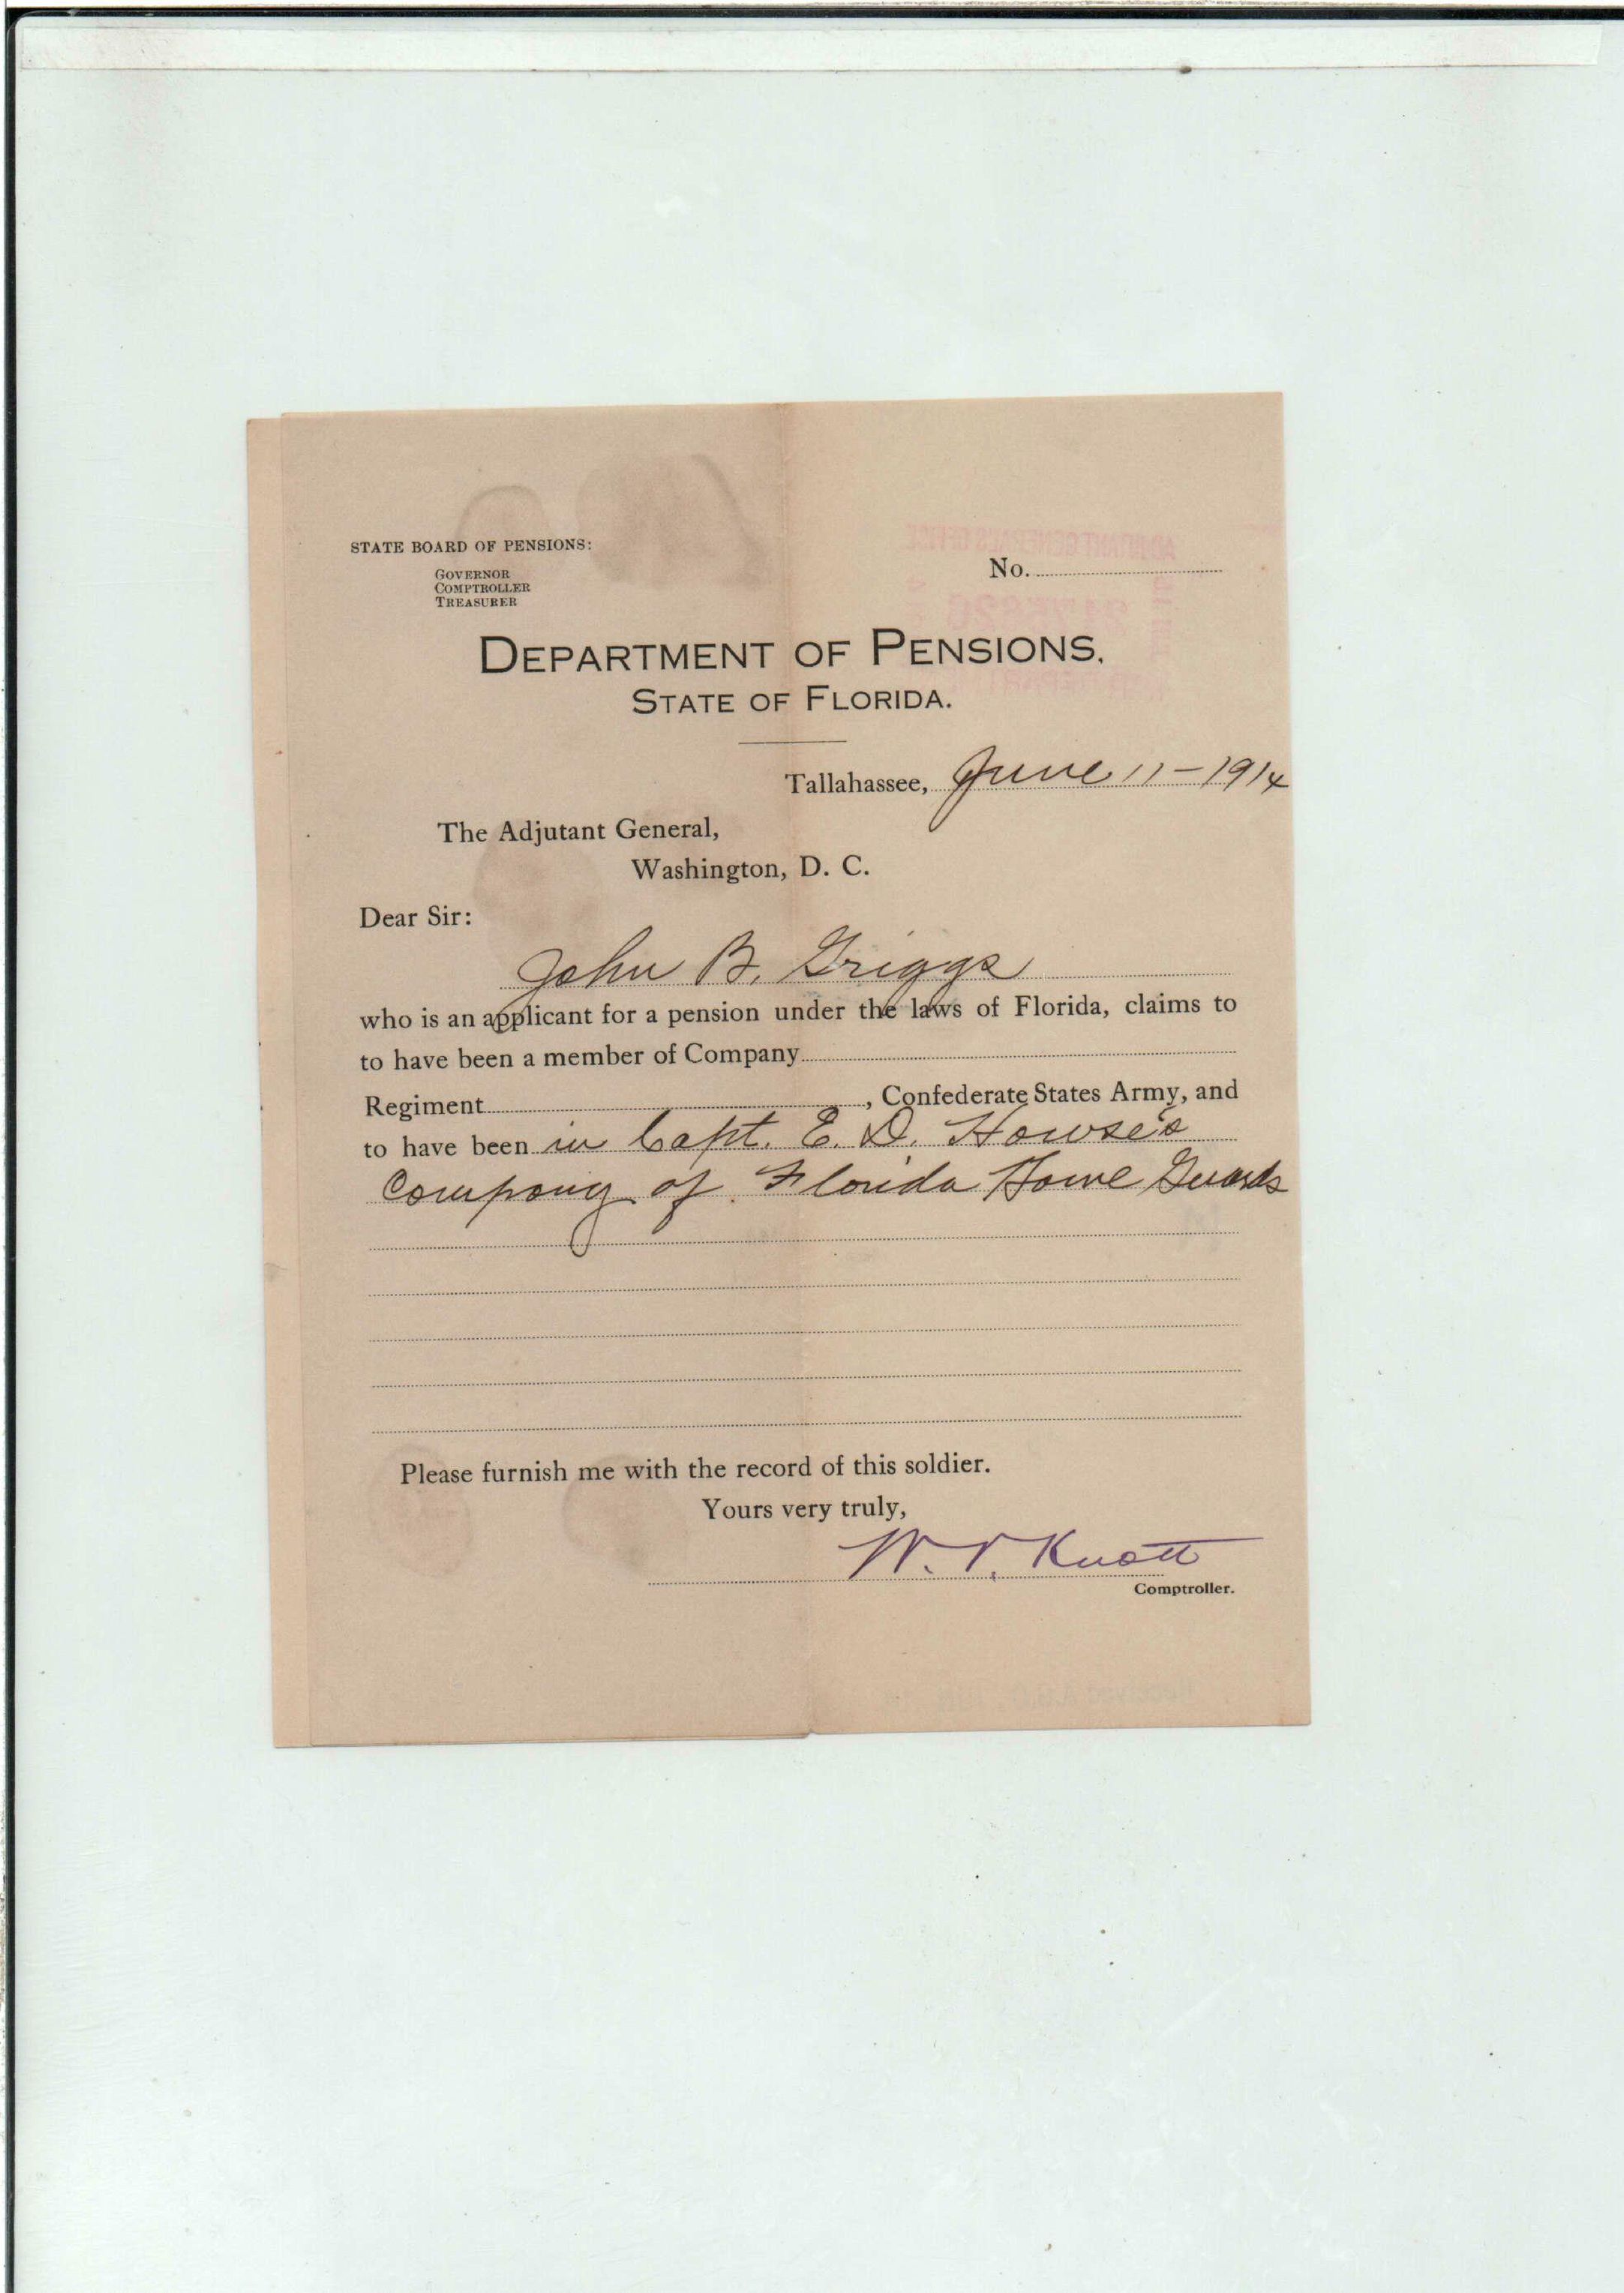 STATE BOARD OF PENSIONS:
GOVERNOR
COMPTROLLER
TREASURER
No.
DEPARTMENT OF PENSIONS,
STATE OF FLORIDA.
Tallahassee, June 11-1914
The Adjutant General,
Washington, D. C.
Dear Sir:
John B. Griggs
who is an applicant for a pension under the laws of Florida, claims to
to have been a member of Company
Regiment, Confederate States Army, and
to have been in Capt. E. D. Howse's
Company of Florida Home Guards
Please furnish me with the record of this soldier.
Yours very truly,
W. V. Knott
Comptroller.